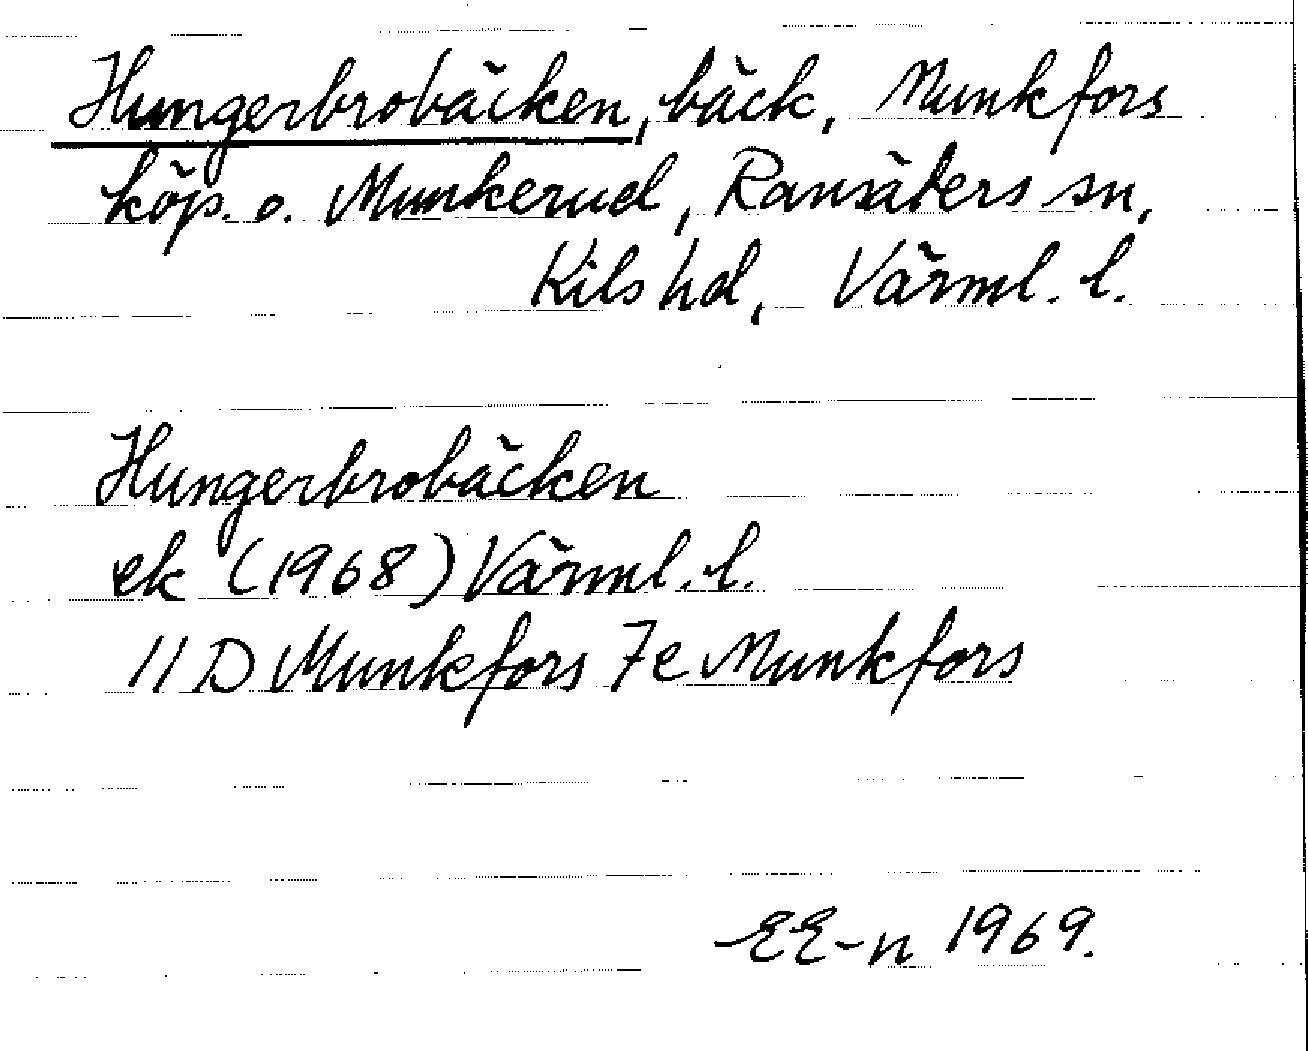 Hungerbrobäcken, bäck, Munkfors
köp. o. Munkerud, Ransäters sn,
Kils hd, Värml. l.
Hungerbrobäcken
ek (1968) Värml. l.
11 D Munkfors 7e Munkfors
EE-n 1969.